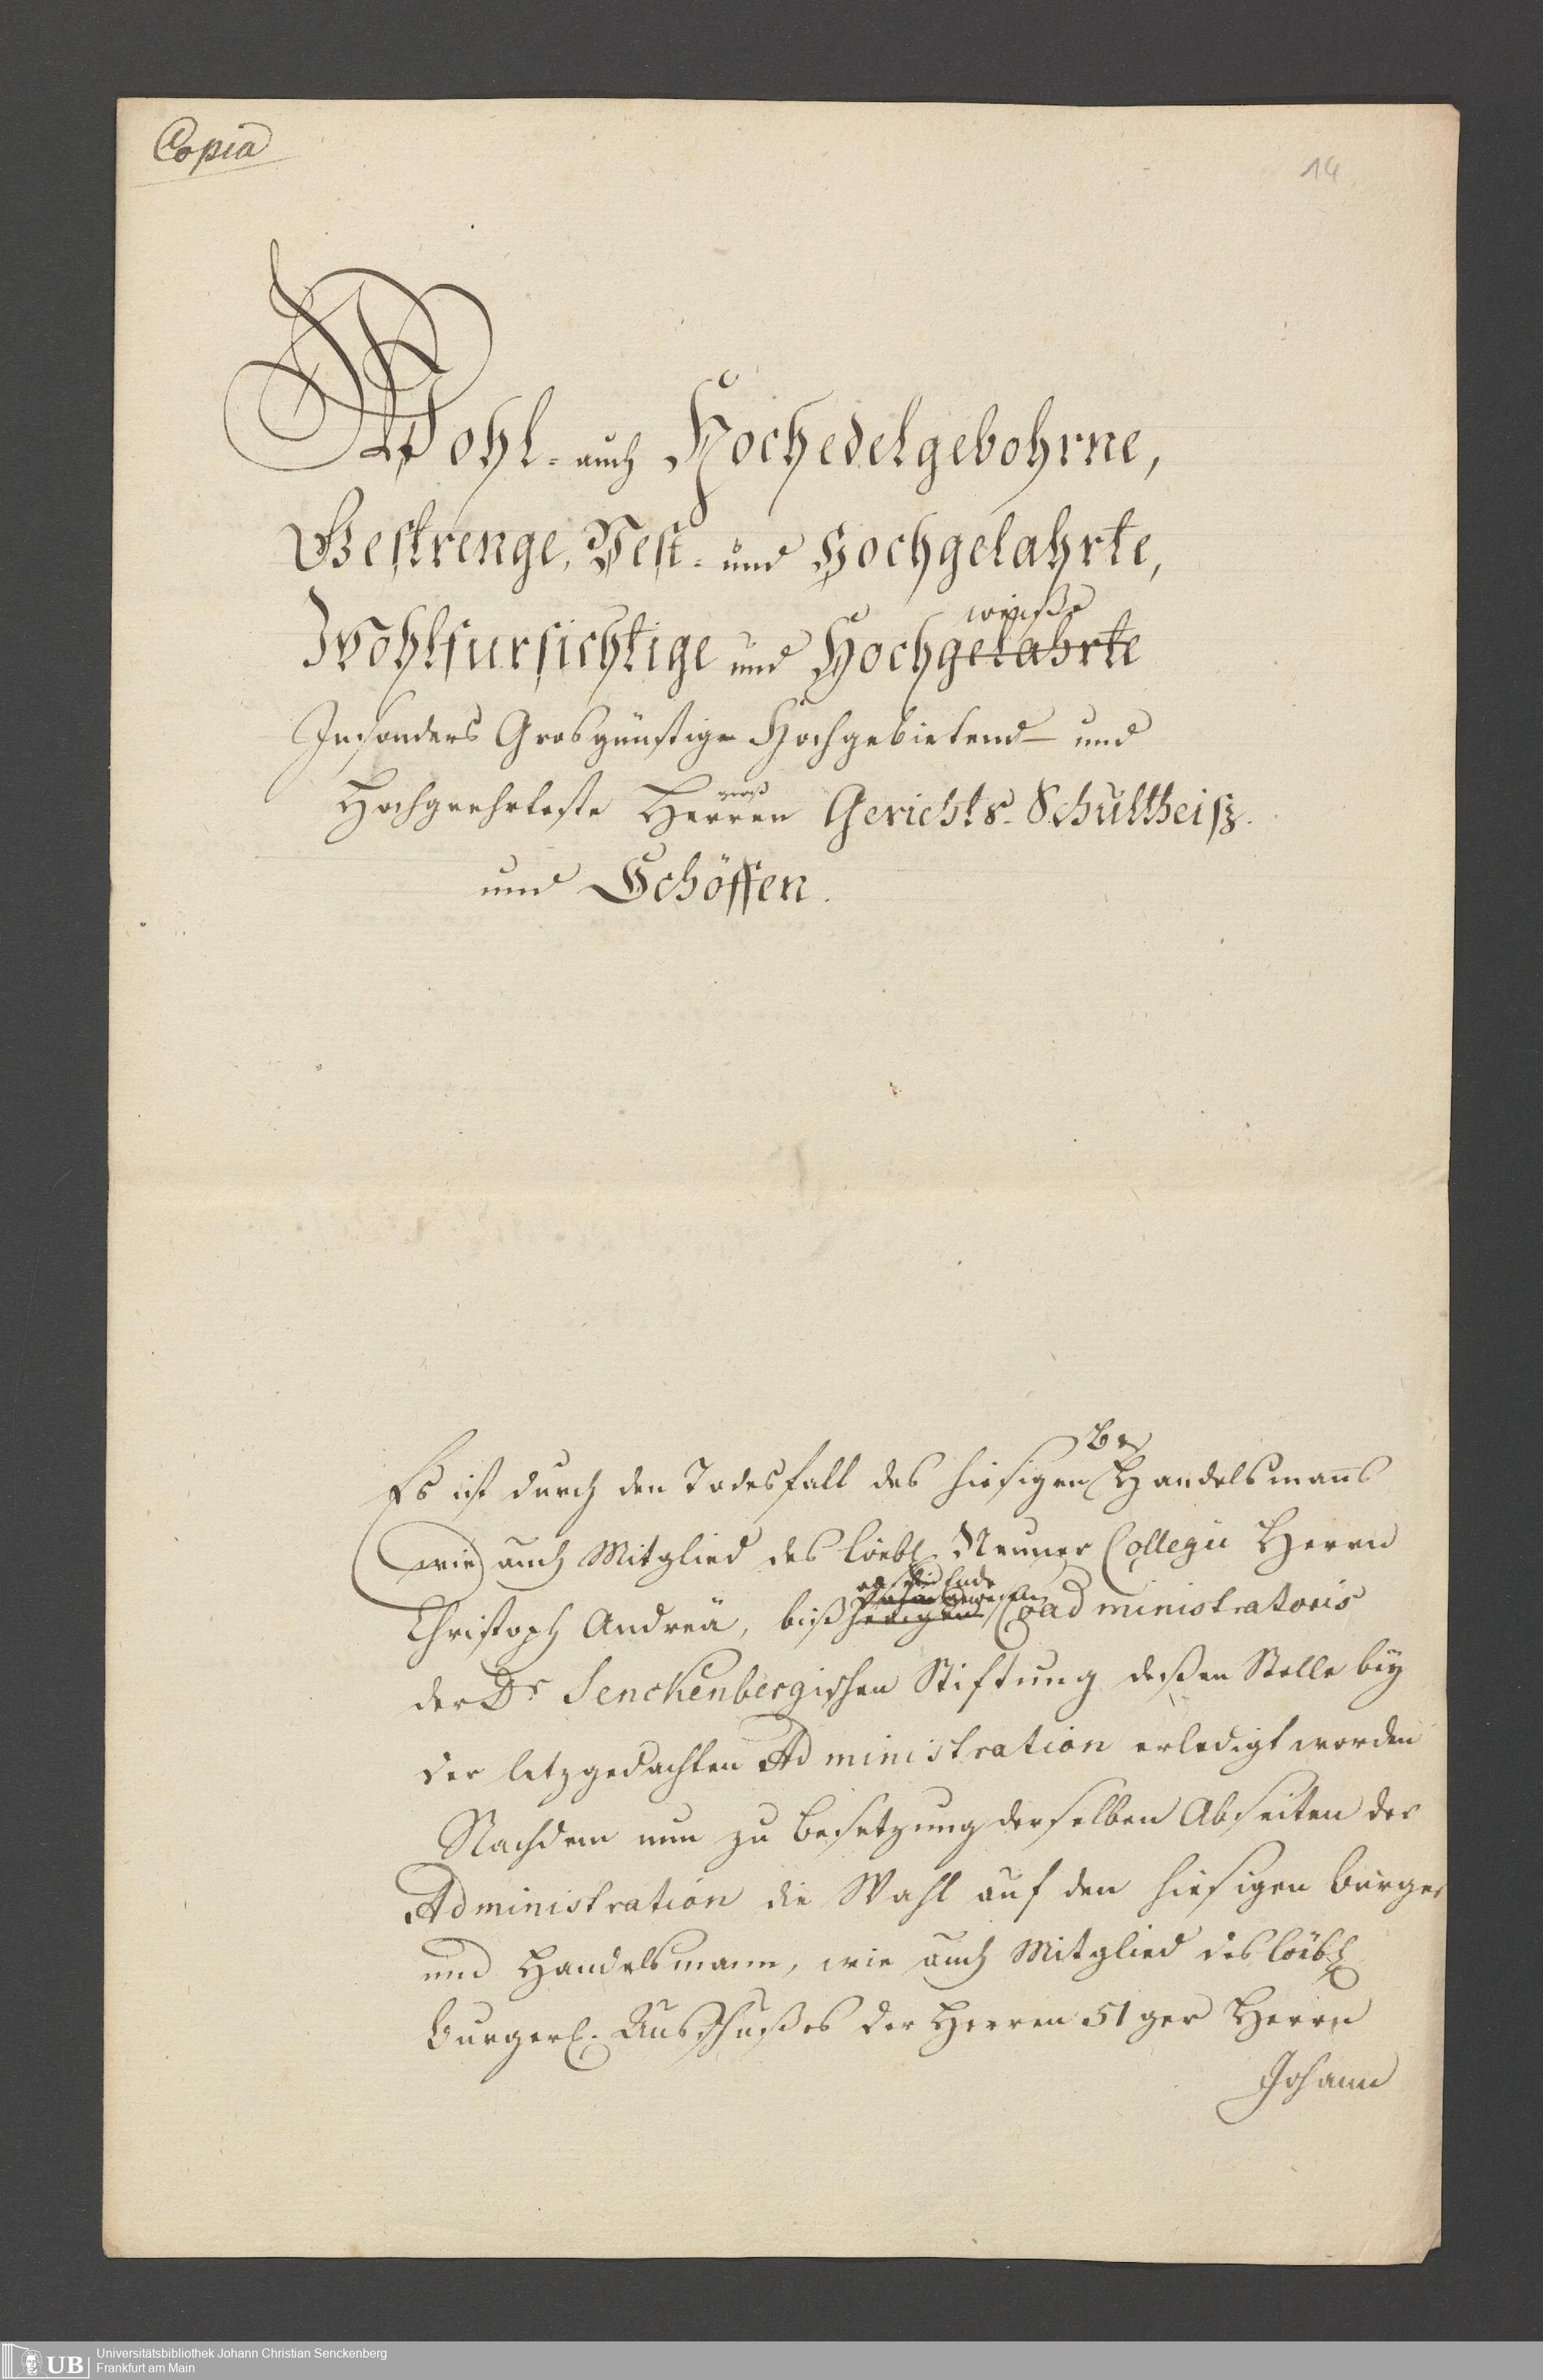 Copia
14
Wohl- auch Hochedelgebohrne,
Gestrenge, Vest- und Hochgelahrte,
weiße
Wohlfursichtige und Hochgelahrte
Insonders Grosgünstige Hochgebietend- und
Hochgeehrteste Herren Gerichts-Schultheiß.
und Schöffen.
Es ist durch den Todesfall des hiesigen Handelsmanns
wie auch Mitglied des löebl. Neuner Collegii Herrn
Christoph Andreä, bißherigen Coadministratoris
der Dr Senckenbergischen Stiftung deßen Stelle bey
der letzgedachten Administration erledigt worden
Nachdem nun zu Besetzung derselben Abseiten der
Administration die Wahl auf den hiesigen Burger
und Handelsmann, wie auch Mitglied des löebl
Burgerl. Ausschußes der Herren 51ger Herrn
Johann
UB Universitätsbibliothek Johann Christian Senckenberg
Frankfurt am Main